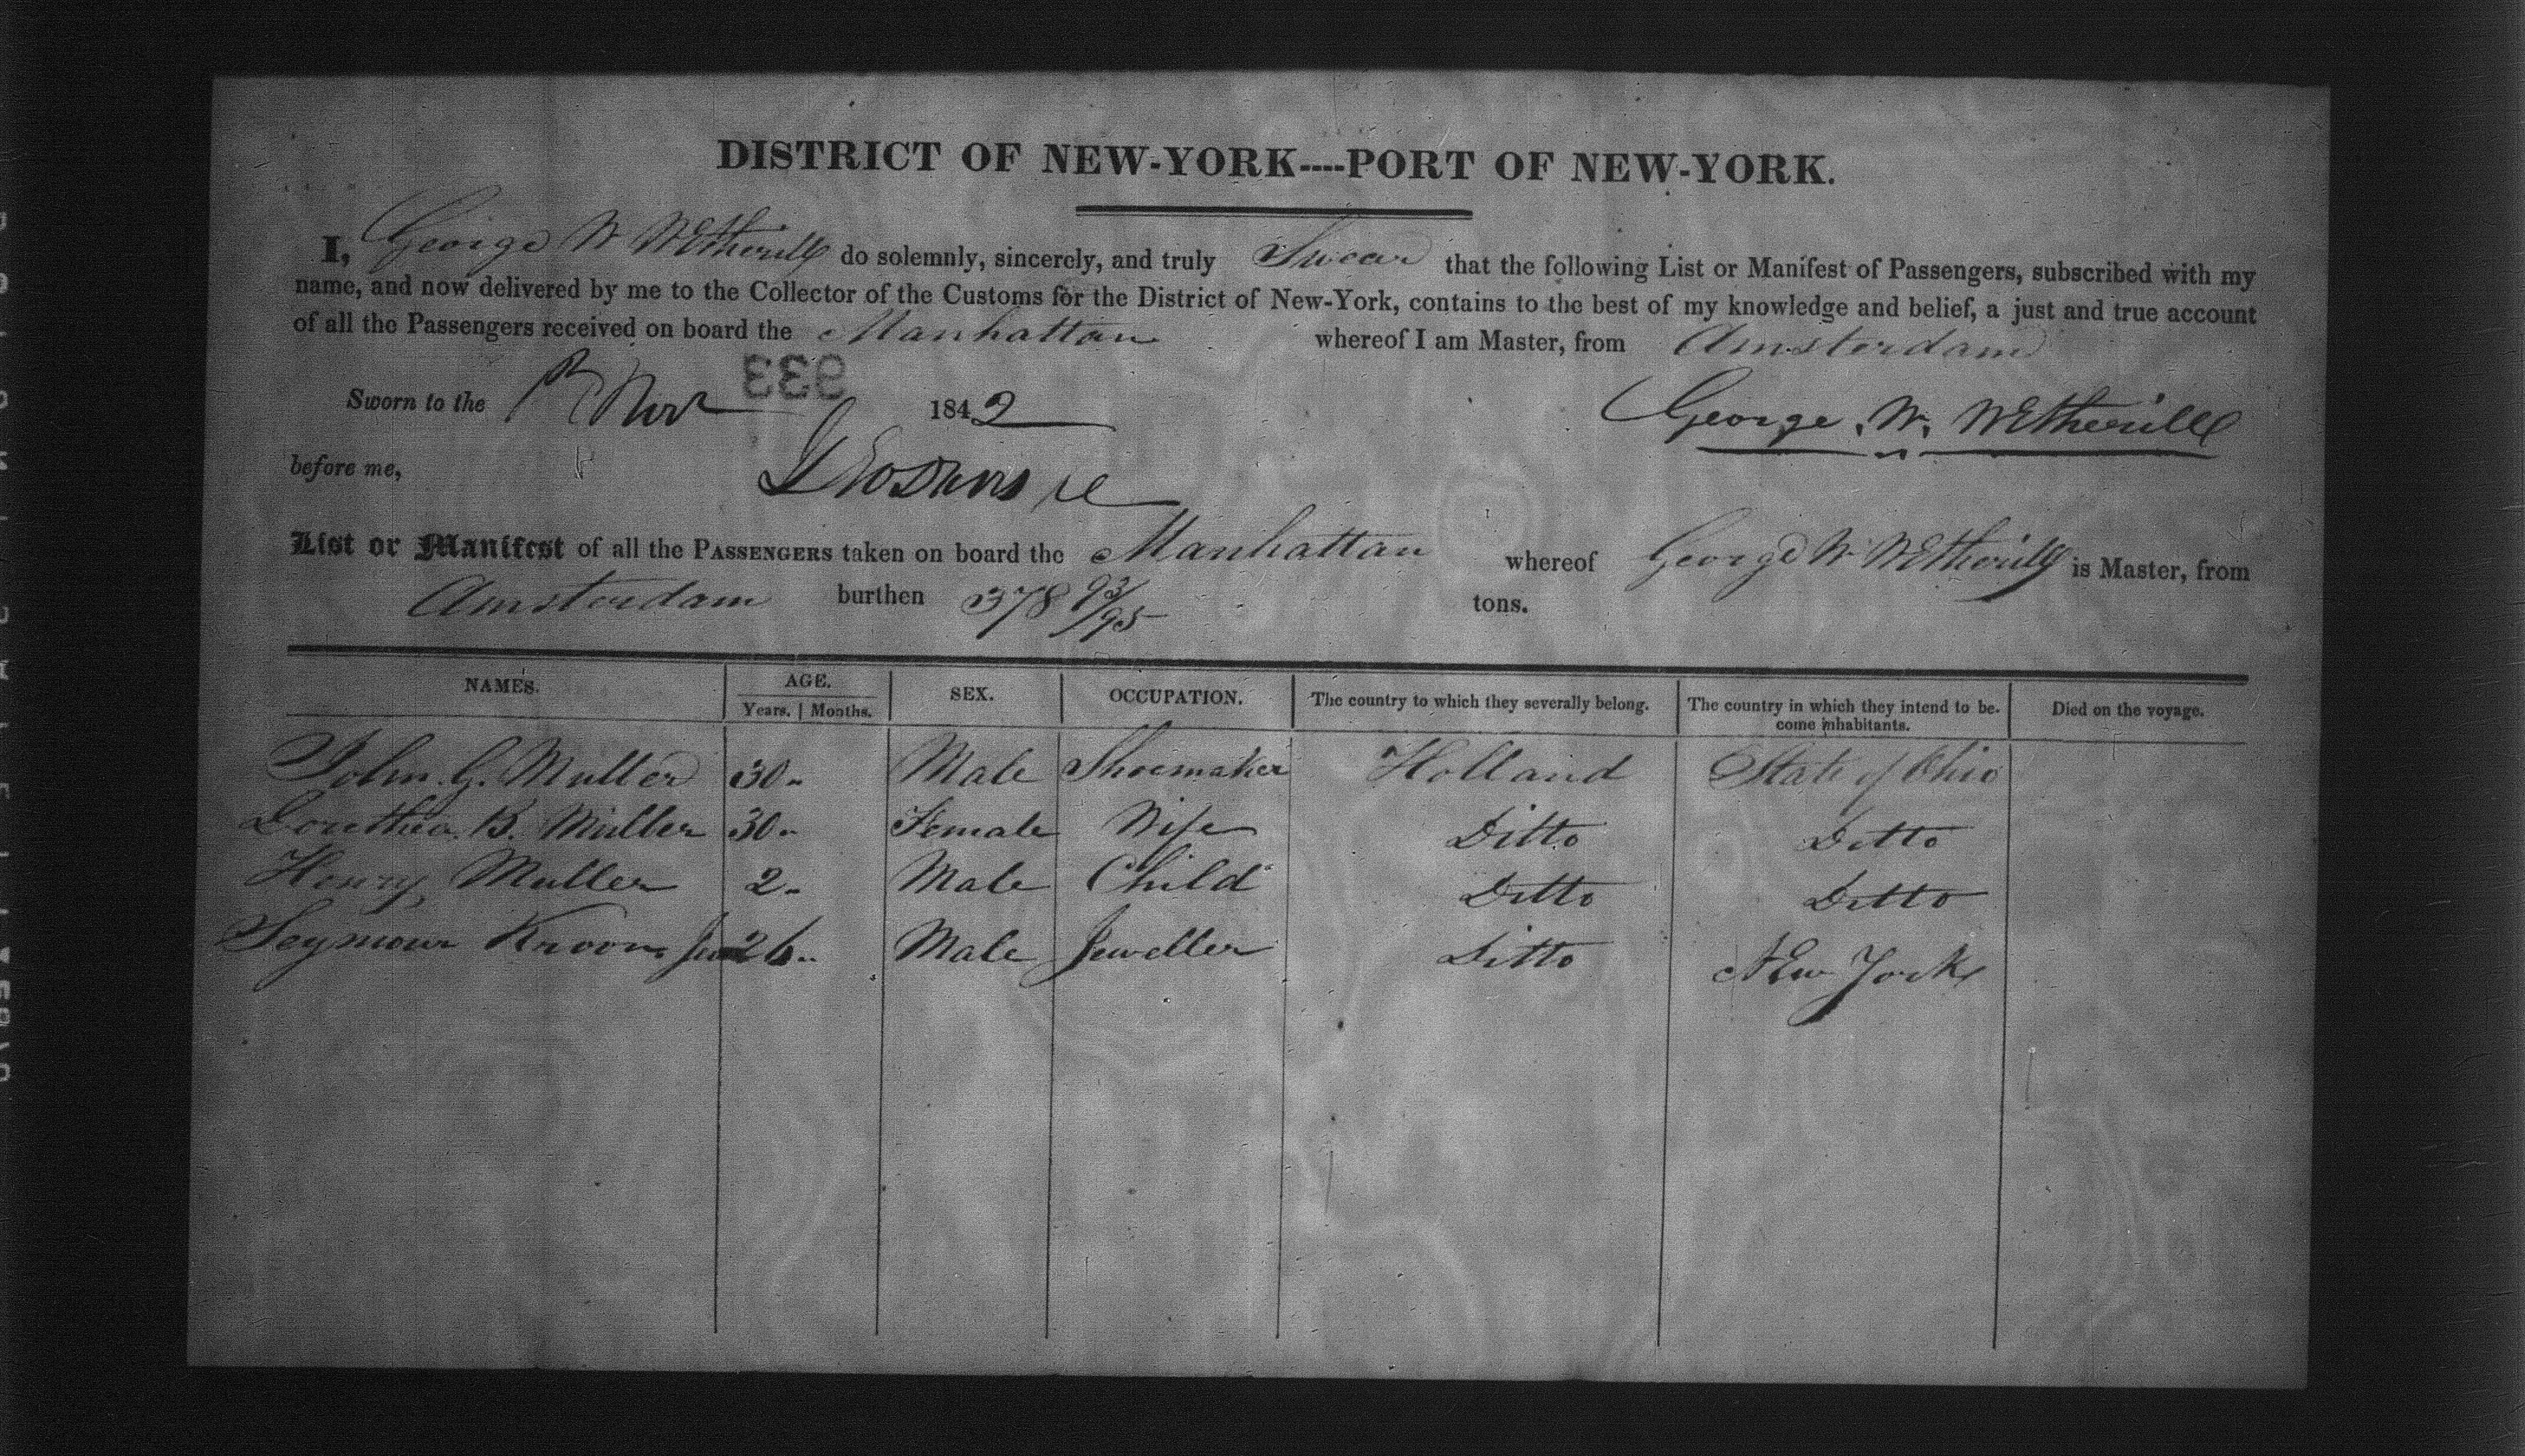 DISTRICT OF NEW-YORK----PORT OF NEW-YORK.
I, George W Wetherill do solemnly, sincerely, and truly Swear that the following List or Manifest of Passengers, subscribed with my
name, and now delivered by me to the Collector of the Customs for the District of New-York, contains to the best of my knowledge and belief, a just and true account
of all the Passengers received on board the Manhattan whereof I am Master, from Amsterdam
933
Sworn to the Nov 1842 George. W. Wetherill
before me,
List or Manifest of all the PASSENGERS taken on board the Manhattan whereof George W Wetherill is Master, from
Amsterdam burthen 378 93/95 tons.
NAMES. AGE. SEX. OCCUPATION. The country to which they severally belong. The country in which they intend to be- Died on the voyage.
Years. | Months. come inhabitants.
John. G. Muller 30" Male Shoemaker Holland State of Ohio
Dorothea. B. Muller 30" Female Wife Ditto Ditto
Henry Muller 2" Male Child Ditto Ditto
Seymour Kroon Jun 26" Male Jeweller Ditto New York